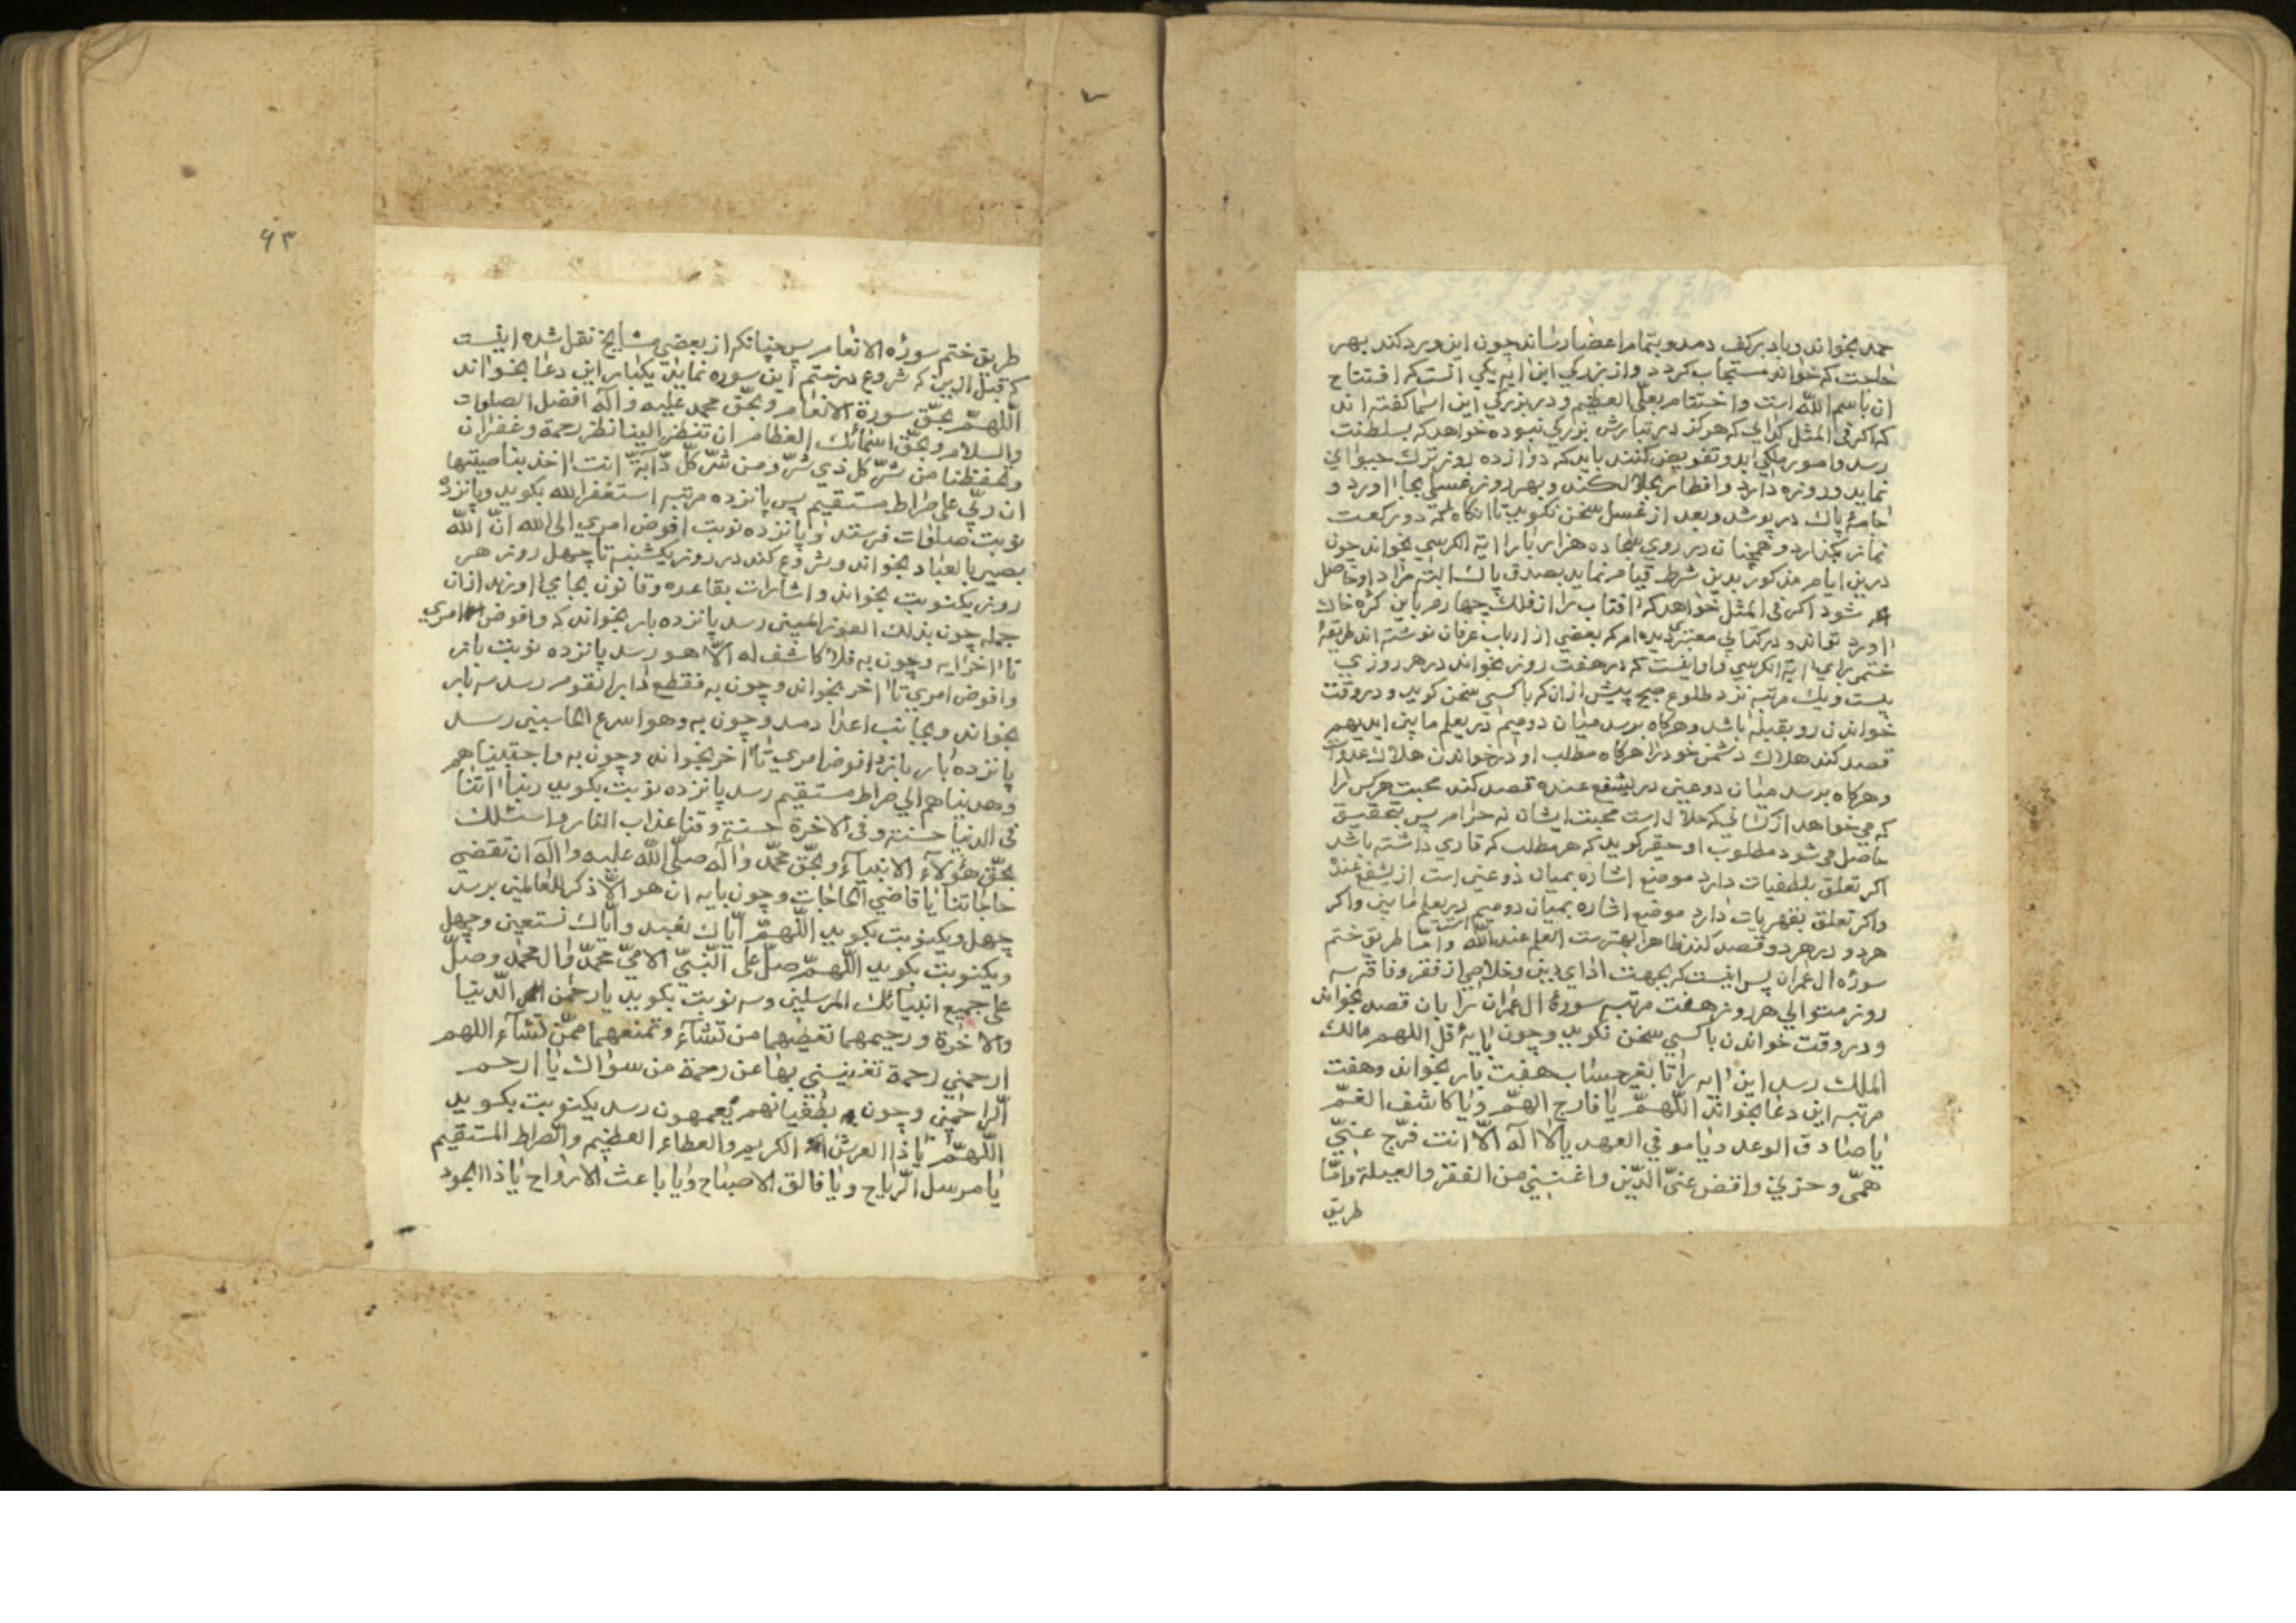 حمد بخواند و باد بر کف دمد و بتمام اعضا رساند چون این ورد کند بهر
حاجت که خواند مستجاب کردد و از بزرکي این ایه یکي انست که افتتاح
ان باسم الله است و اختتام بعلي العظیم و در بزرکي این اسما کفته اند
که اکر فی المثل کدای که هرکز در تبارش بزرکي نبوده خواهد که بسلطنت
رسد و امور ملکي ابد و تفویض کنند باید که دوازده روز ترک حیواني
نماید و روزه دارد و افطار بحلال کند و بهر روز غسلي بجا اورد و
جامهٔ پاک در پوشد و بعد از غسل سخن نکوید تا انکاه که دو رکعت
نماز بکذارد و همچنان در روي سجاده هزار بار ایة الکرسي بخواند چون
درین ایام مذکور بدین شرط قیام نماید بصدق پاک البته مراد او حاصل
شود اکر فی المثل خواهد که افتاب را از فلک چهارم باین کره خاک
اورد تواند و در کتابي معتبر دیده ام که بعضي از ارباب عرفان نوشته اند طریقهٔ
ختمی براي ایة الکرسي و اینست که در هفت روز بخواند در هر روزي
بیست و یک مرتبه نزد طلوع صبح پیش از ان که با کسي سخن کوید و در وقت
خواندن رو بقبله باشد و هرکاه برسد میان دو میم در یعلم ما بین ایدیهم
قصد کند هلاک دشمن خود را هرکاه مطلب او در خواندن هلاک عدو است
و هرکاه برسد میان دو عین در یشفع عنده قصد کند محبت هرکس را
که می خواهد از کساني که حلال است محبت ایشان نه حرام پس بتحقیق
حاصل می شود مطلوب او حقیر کوید که هر مطلب که قاري داشته باشد
اکر تعلق بلطفیات دارد موضع اشاره بمیان دو عین است از یشفع عنده
و اکر تعلق بقهریات دارد موضع اشاره بمیان دو میم در یعلم ما بین و اکر
هر دو در هر دو قصد کند ظاهرا بهتر است العلم عند الله و اما طریق ختم
سورهٔ ال عمران پس اینست که بجهت اداي دین و خلاصي از فقر و فاقه سه
روز متوالي هر روز هفت مرتبه سورهٔ ال عمران را بان قصد بخواند
و در وقت خواندن با کسي سخن نکوید و چون بایهٔ قل اللهم مالک
الملک رسد این ایه را تا بغیر حساب هفت بار بخواند و هفت
مرتبه این دعا بخواند اللّهمّ یا فارج الهمّ و یا کاشف الغمّ
یا صادق الوعد و یا موفي العهد یا لا اله الّا انت فرّج عنّي
همّی و حزني و اقض عنّي الدّین و اغنني من الفقر و العیلة و امّا
طریق
۶۳
طریق ختم سورهٔ الانعام پس چنانکه از بعضي مشایخ نقل شده اینست
که قبل از این که شروع در ختم این سوره نماید یکبار این دعا بخواند
اللّهمّ بحقّ سورة الانعام و بحقّ محمد علیه و اله افضل الصلوات
والسلام و بحقّ اسمائک العظام ان تنظر الینا نظر رحمة و غفران
و تحفظنا من شرّ کل ذي شرّ و من شرّ کلّ دآبّة انت اخذ بناصیتها
ان ربّي علی صراط مستقیم پس پانزده مرتبه استغفر الله بکوید و پانزده
نوبت صلوات فرستد و پانزده نوبت افوض امري الی الله انّ الله
بصیر بالعباد بخواند و شروع کند در روز یکشنبه تا چهل روز هر
روز یکنوبت بخواند و اشارات بقاعده و قانون بجاي اورند از ان
جمله چون بذلک الفوز المبین رسد پانزده بار بخواند که و افوض امري
تا اخر ایه و چون به فلا کاشف له الّا هو رسد پانزده نوبت باز
و افوض امري تا اخر بخواند و چون به فقطع دابر القوم رسد سه بار
بخواند و بجانب اعدا دمد و چون به و هو اسرع الحاسبین رسد
پانزده بار باز افوض امري تا اخر بخواند و چون به و اجتبیناهم
و هدیناهم الي صراط مستقیم رسد پانزده نوبت بکوید ربنا اتنا
فی الدنیا حسنة و فی الاخرة حسنة و قنا عذاب النار و اسئلک
بحقّ هؤلآء الانبیآء و بحقّ محمّد و اله صلّی الله علیه و اله ان تقضي
حاجاتنا یا قاضي الحاجات و چون بایه ان هو الّا ذکر للعالمین برسد
چهل و یکنوبت بکوید اللّهمّ ایّاک نعبد و ایّاک نستعین و چهل
و یکنوبت بکوید اللّهمّ صلّ علی النّبيّ الامّيّ محمّد و ال محمّد و صلّ
علی جمیع انبیائک المرسلین و سه نوبت بکوید یا رحمٰن الدّنیا
والاخرة و رحیمهما تعطیهما من تشآء و تمنعهما ممّن تشآء اللهم
ارحمني رحمة تغنیني بها عن رحمة من سواک یا ارحم
الراحمین و چون به بطغیانهم یعمهون رسد یکنوبت بکوید
اللّهمّ یا ذا العرش الکریم والعطاء العظیم والصراط المستقیم
یا مرسل الرّیاح و یا فالق الاصباح و یا باعث الارواح یا ذا الجود